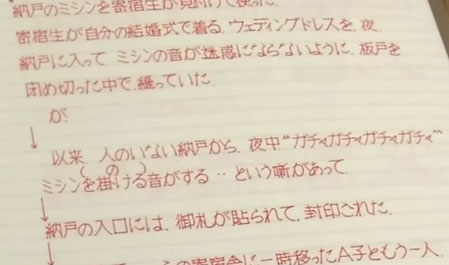 納戸のミシンを寄宿生が見付けて使った.
寄宿生が自分の結婚式で着る. ウェディングドレスを. 夜.
納戸に入って. ミシンの音が迷惑にならないように. 板戸を
閉め切った中で. 縫っていた.
が
↓
以来. 人のいない納戸から. 夜中“ガチャガチャガチャガチャ”
ミシンを掛ける音がする‥という噺があって.
↓
納戸の入口には. 御札が貼られて. 封印された.
↓
寄宿舎に一時移ったA子ともう一人.